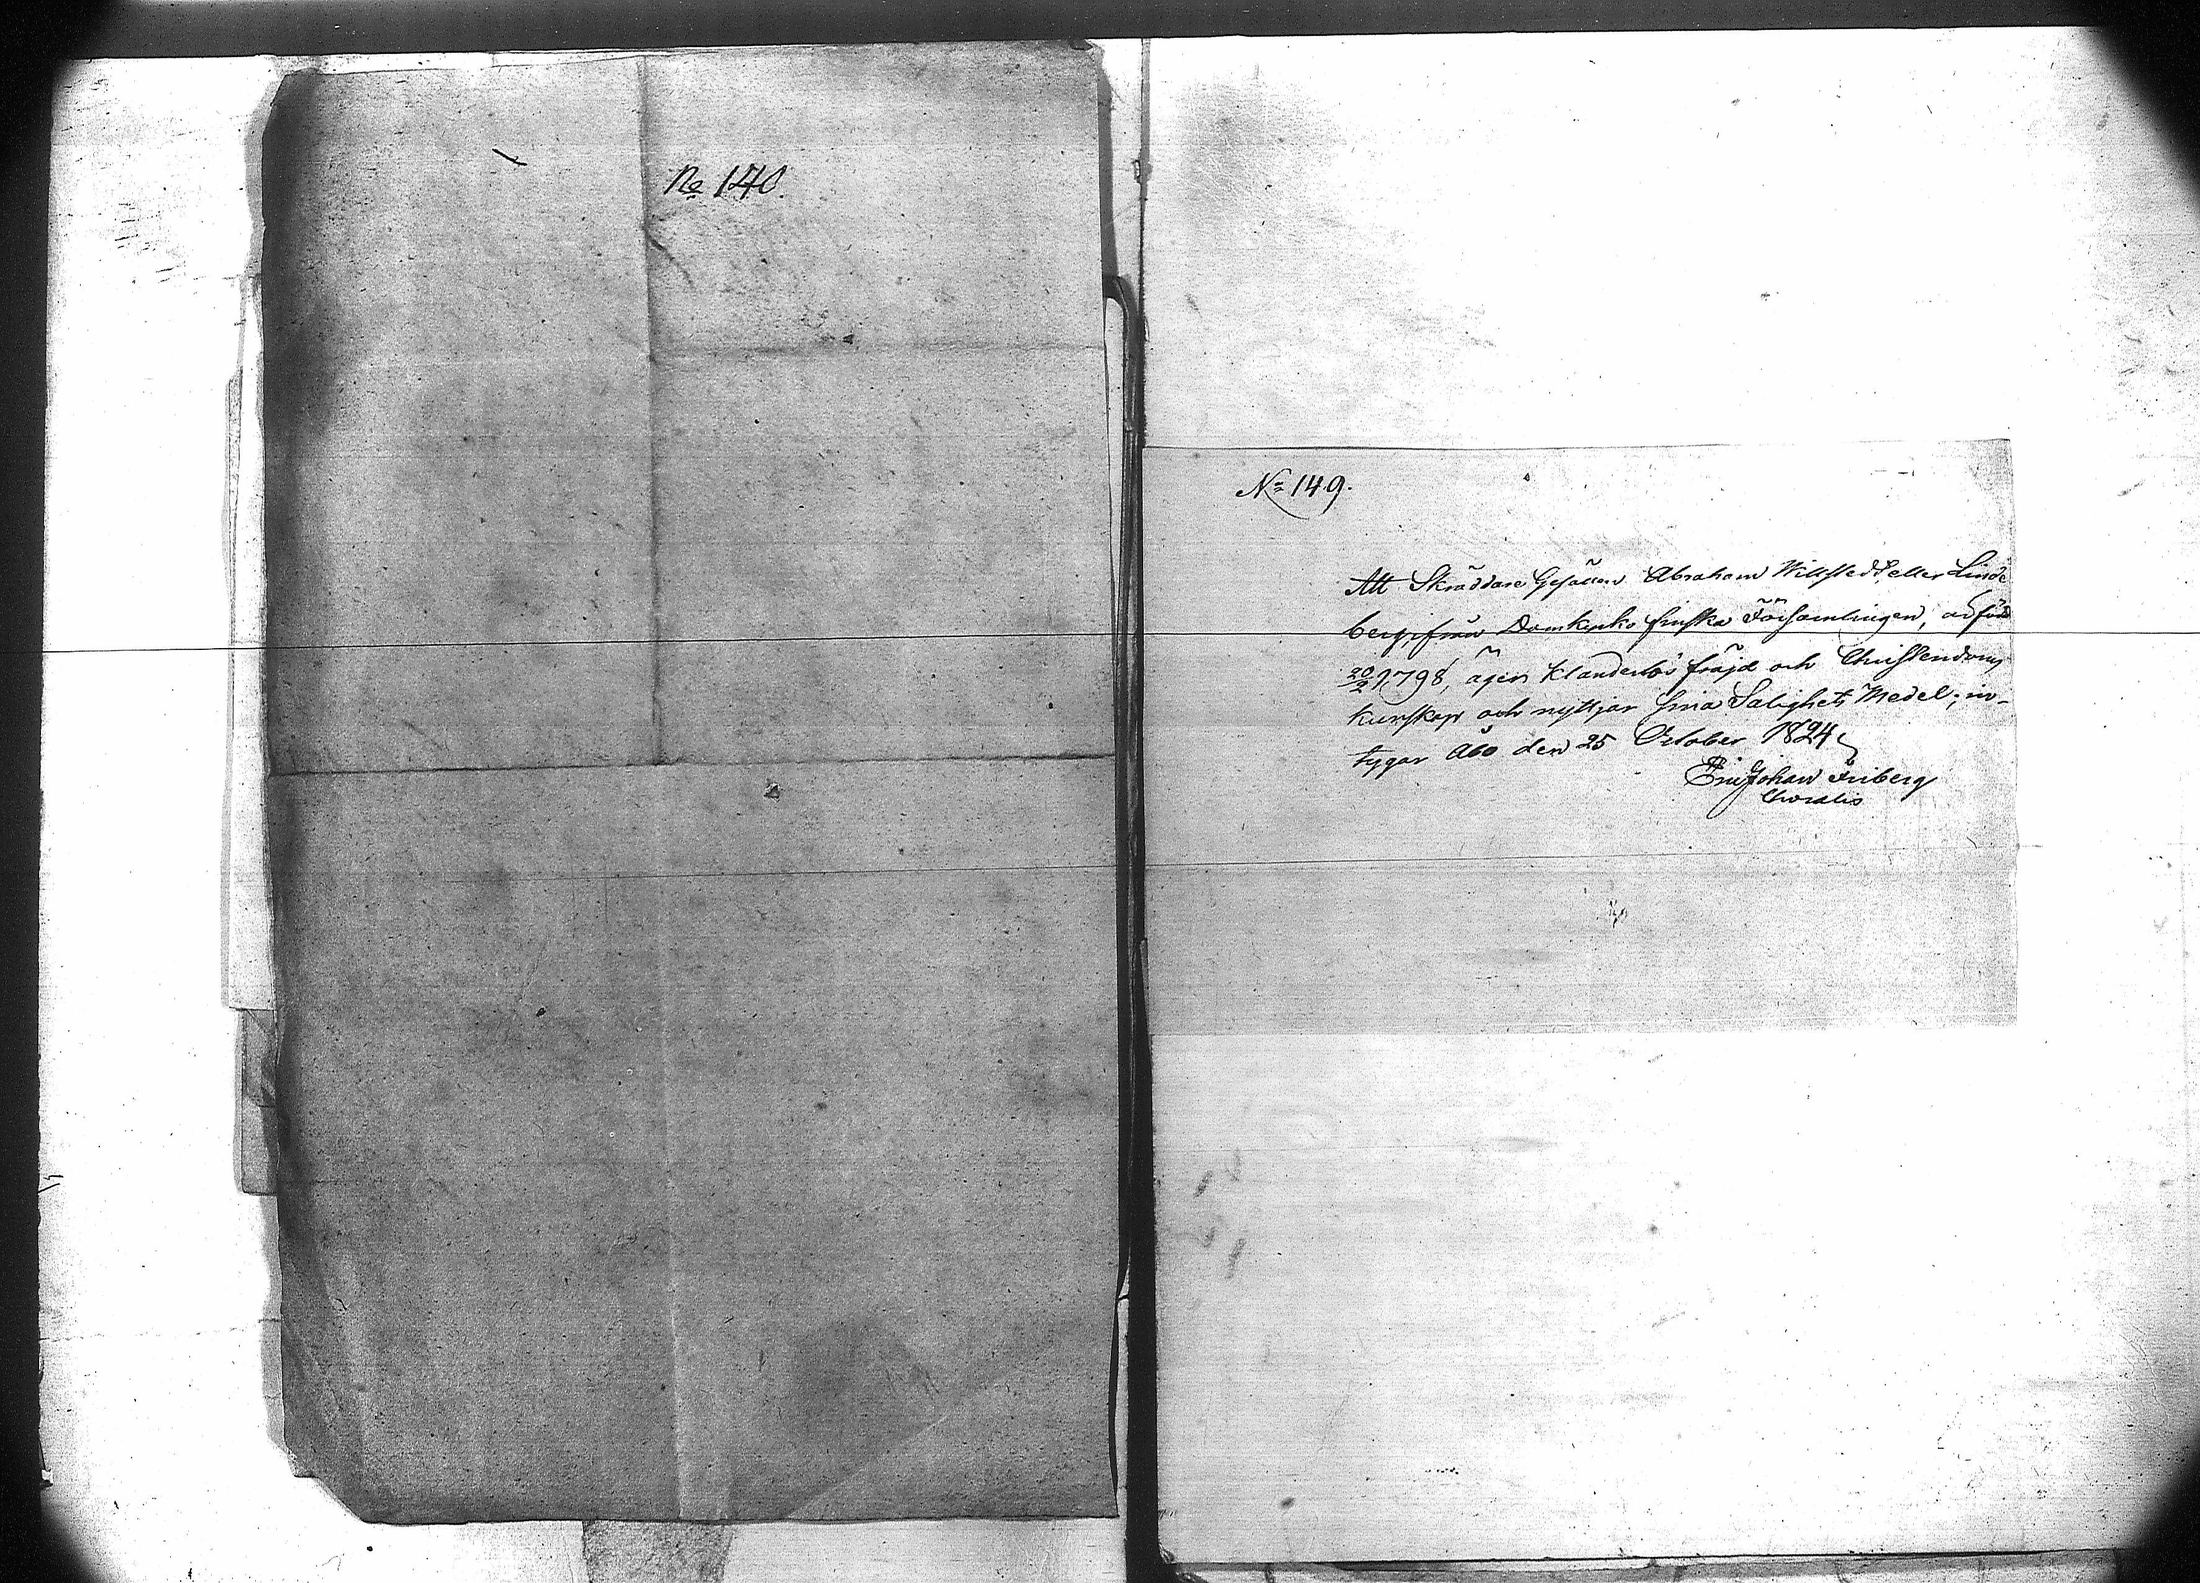 No 140.
No 149.
Att Skräddare Gesällen Abraham Willstedt eller Linde
berg, ifrån Domkyrko finska Församlingen, är född
20/2 1798, äger klanderlös fräjd och Christendoms
kunskap och nyttjar sina Salighets Medel; in-
tygar Åbo den 25 October 1824
Eric Johan Friberg